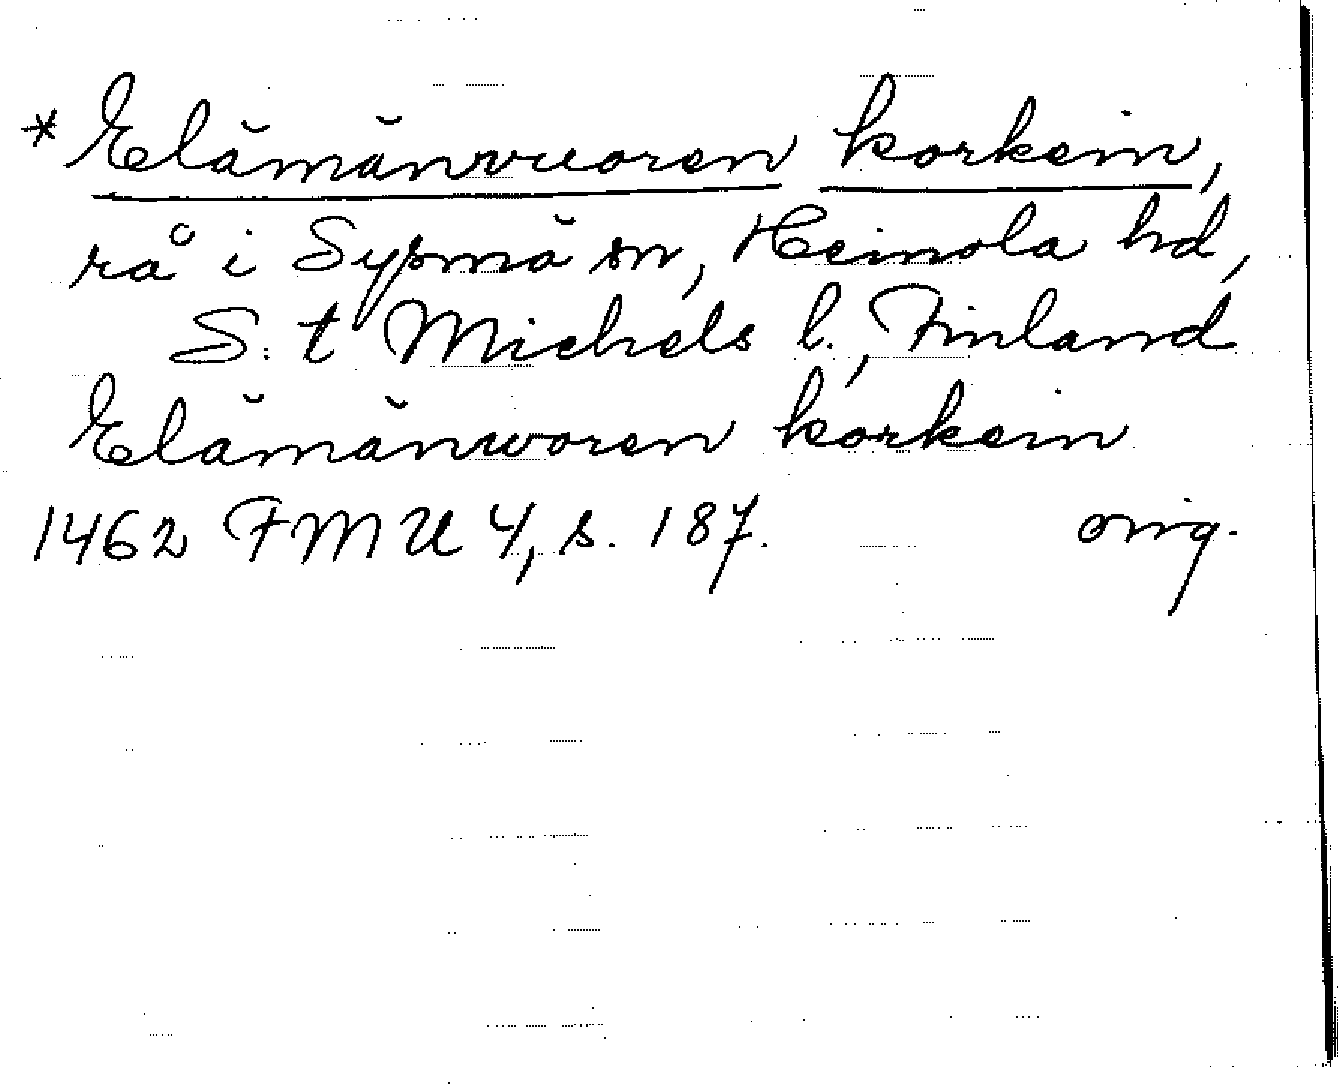 * Elämänvuoren korkein,
rå i Sysmä sn, Heinola hd,
S:t Michels l., Finland
Elämänworen korkein
1462 FMU 4, s. 187. orig.